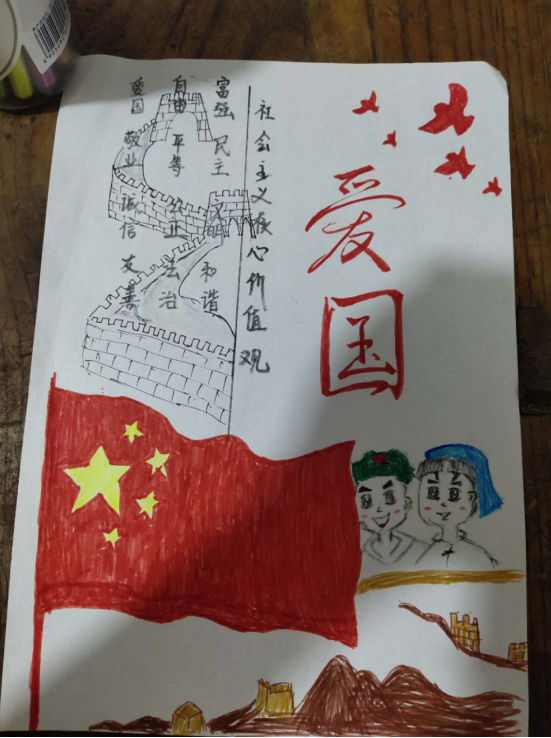 社会主义核心价值观
富强 民主 文明 和谐
自由 平等 公正 法治
爱国 敬业 诚信 友善
爱国